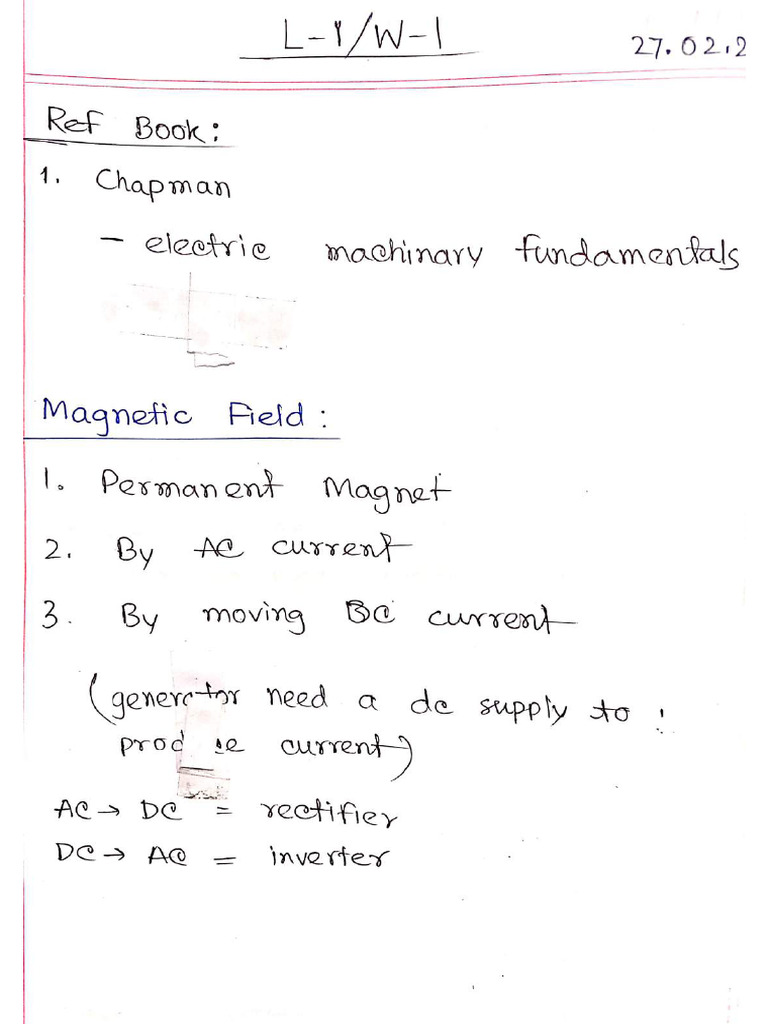 L-1/W-1
27.02.2
Ref Book:
1. Chapman
- electric machinary fundamentals
Magnetic Field:
1. Permanent Magnet
2. By AC current
3. By moving DC current
(generator need a dc supply to
current)
AC → DC = rectifier
DC → AC = inverter